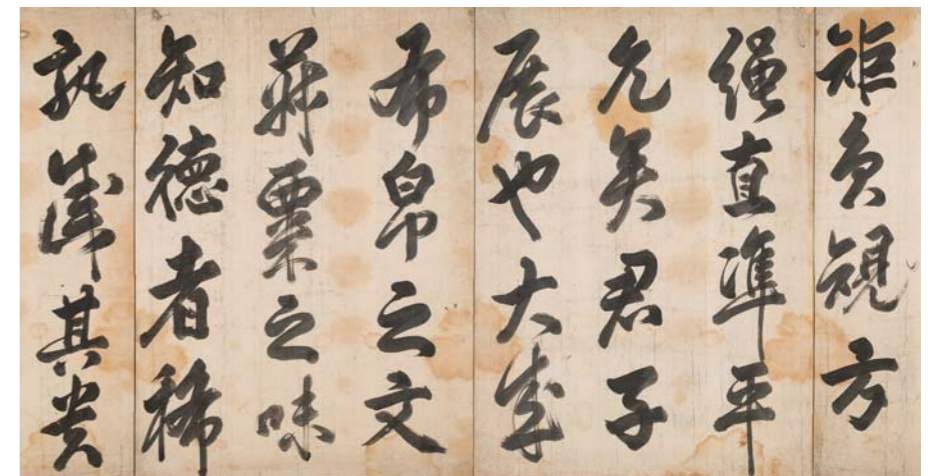 矩員規方
繩直準平
允矣君子
展也大成
布帛之文
菽粟之味
知德者稀
孰識其貴